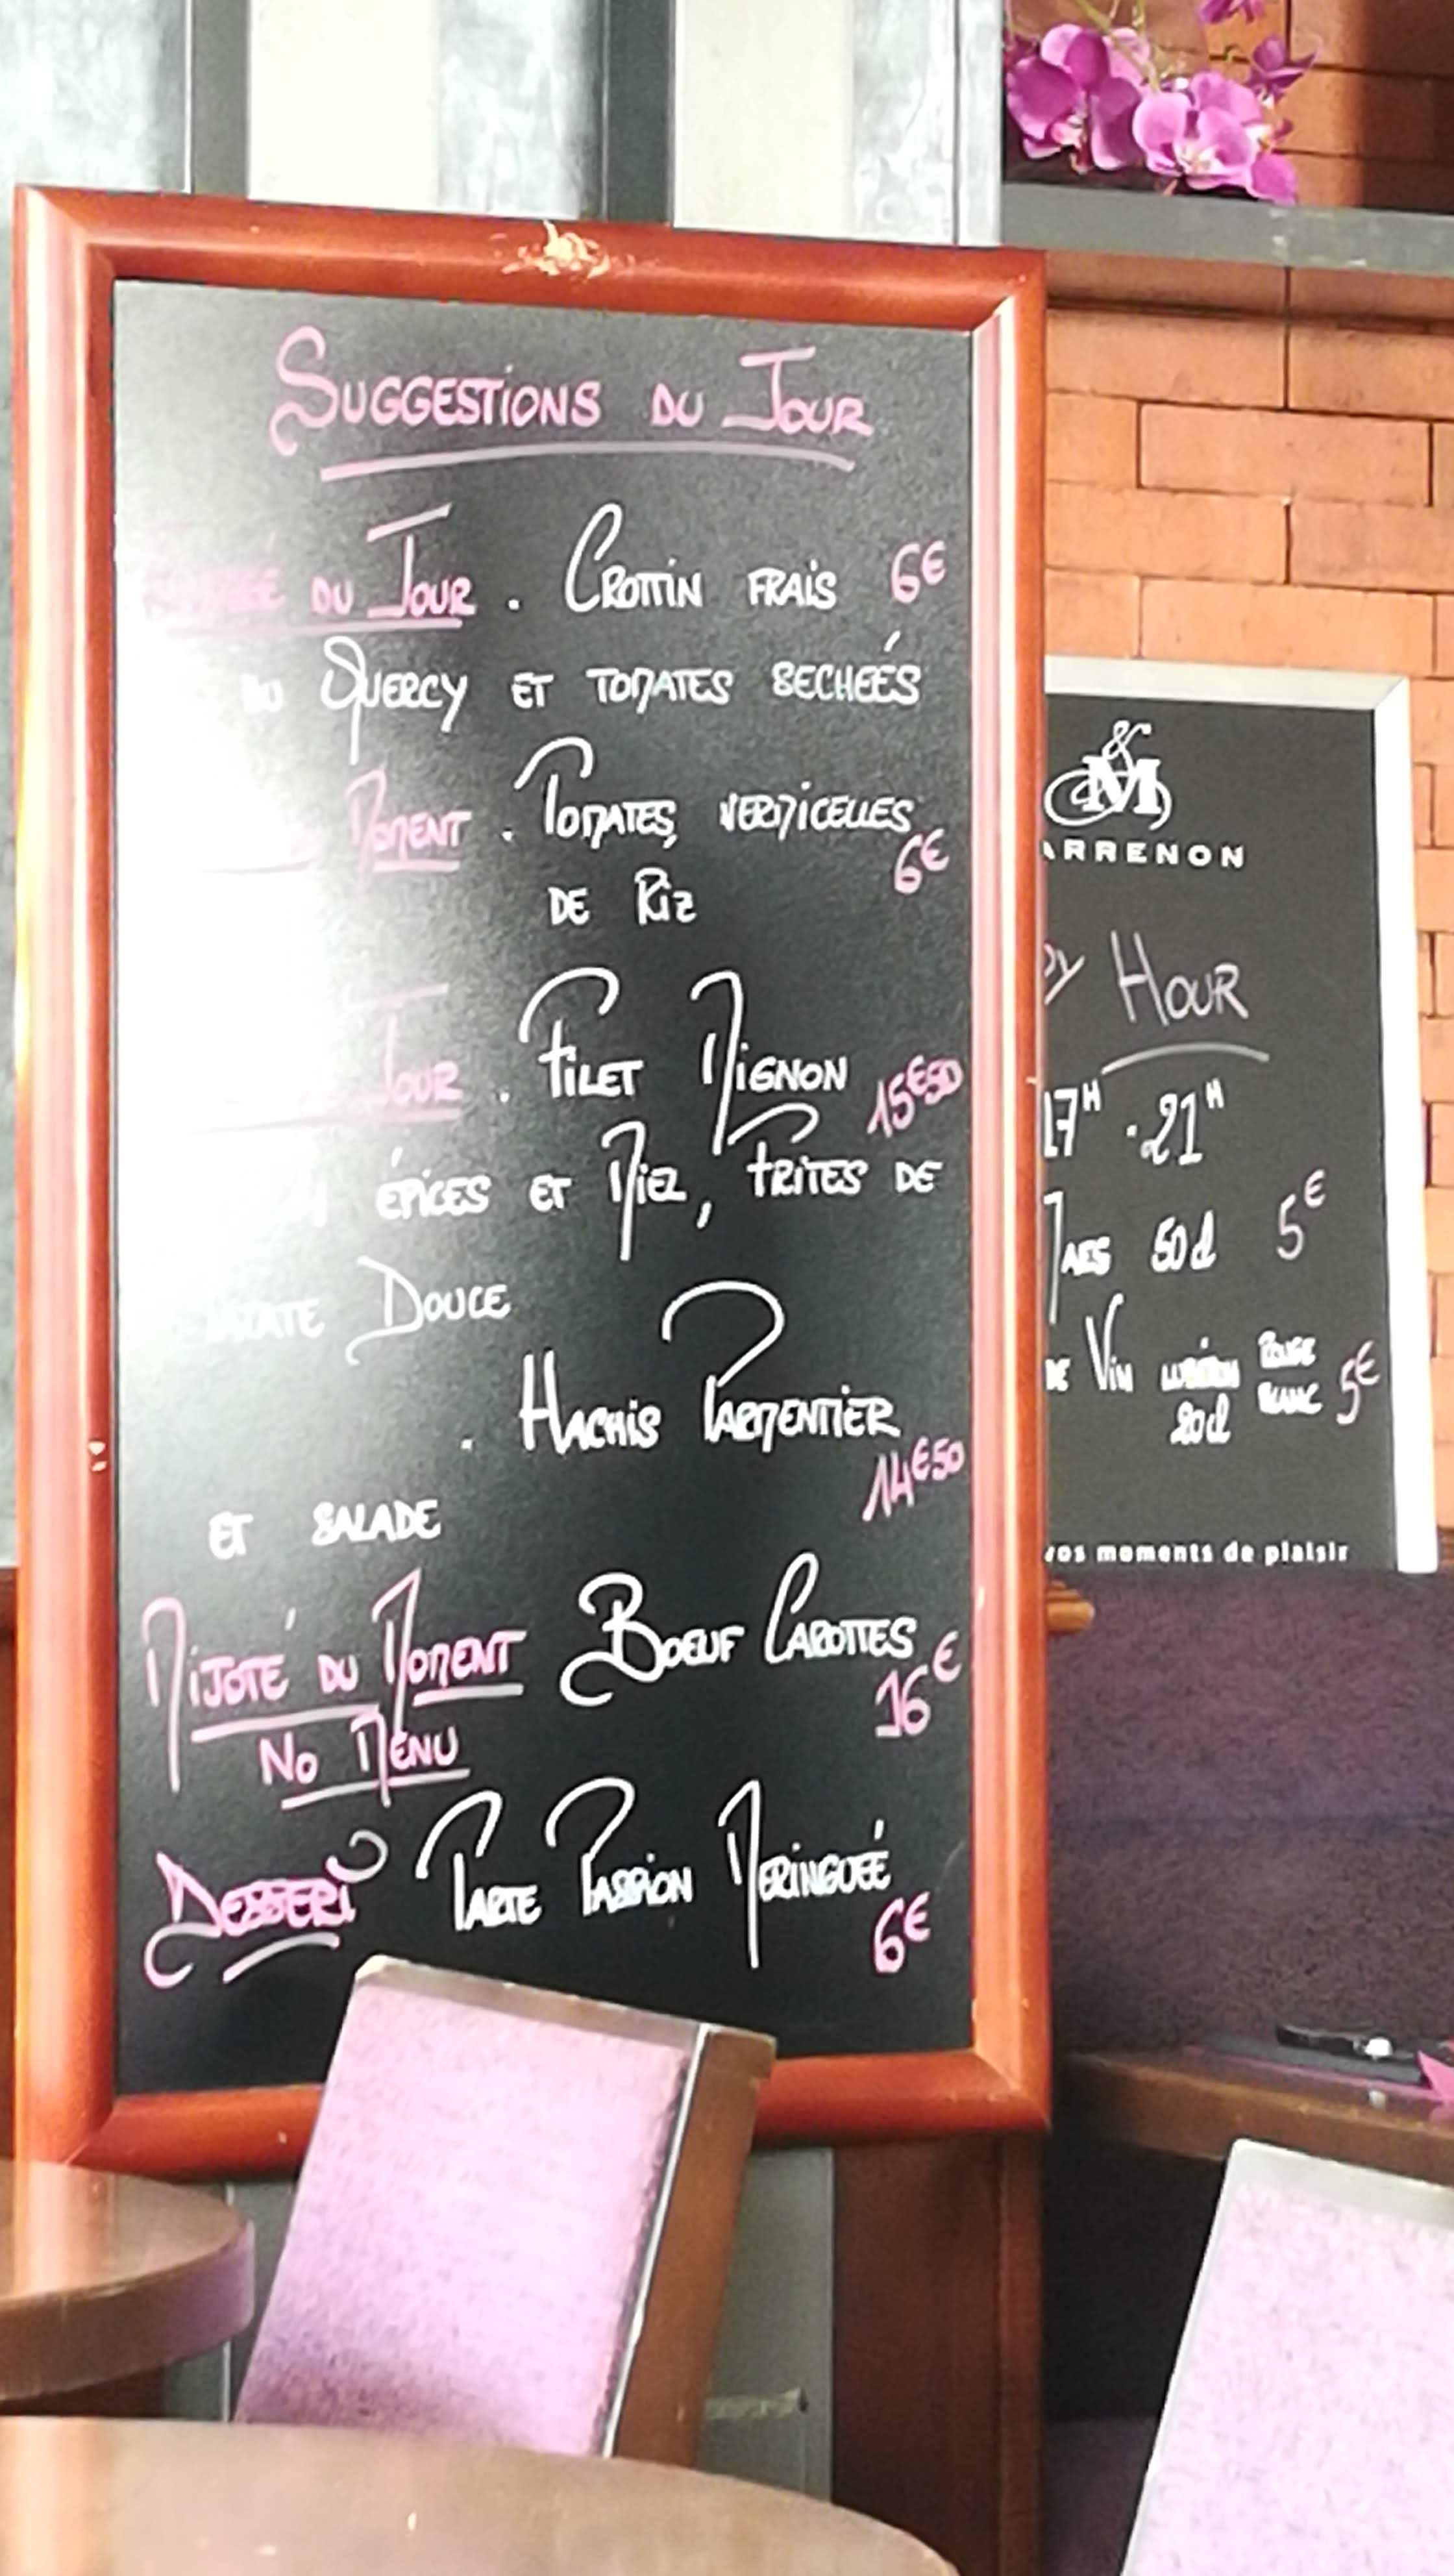 SUGGESTIONS DU JOUR
DU JOUR . CROTTIN FRAIS 6€
DU QUERCY ET TOMATES SECHEÉS
MOMENT . TOMATES, VERMICELLES
6€
DE RIZ
JOUR . FILET MIGNON 15€50
ÉPICES ET MIEL, FRITES DE
DOUCE
. HACHIS PARMENTIER
14€50
ET SALADE
MIJOTÉ DU MOMENT BOEUF CAROTTES
16€
NO MENU
DESSERT TARTE PASSION MERINGUÉE
6€
M
ARRENON
PY HOUR
17H . 21H
MAES 50cl 5€
DE VIN LUBÉRON ROUGE
BLANC 5€
20cl
vos moments de plaisir